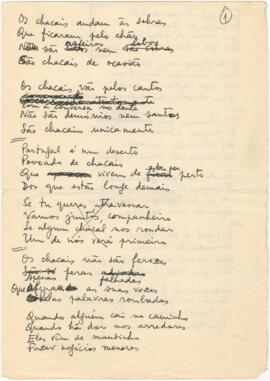 1
Os chacais andam às sobras
Que ficaram pelo chão
Não são rafeiros nem lobos
São chacais de ocasião
Os chacais vão pelos cantos
Com a conversa no dente
Não são demónios nem santos
São chacais unicamente
Portugal é um deserto
Povoado de chacais
Que vivem de estar por perto
Dos que estão longe demais
Se tu queres atravessar
Vamos juntos, companheiro
Se algum chacal nos rondar
Um de nós verá primeiro
Os chacais não são ferozes
Apenas feras falhadas
Que as suas vozes
palavras roubadas
Quando alguém cai no caminho
Quando há dor nos arredores
Eles vêm de mansinho
Fazer negócios menores